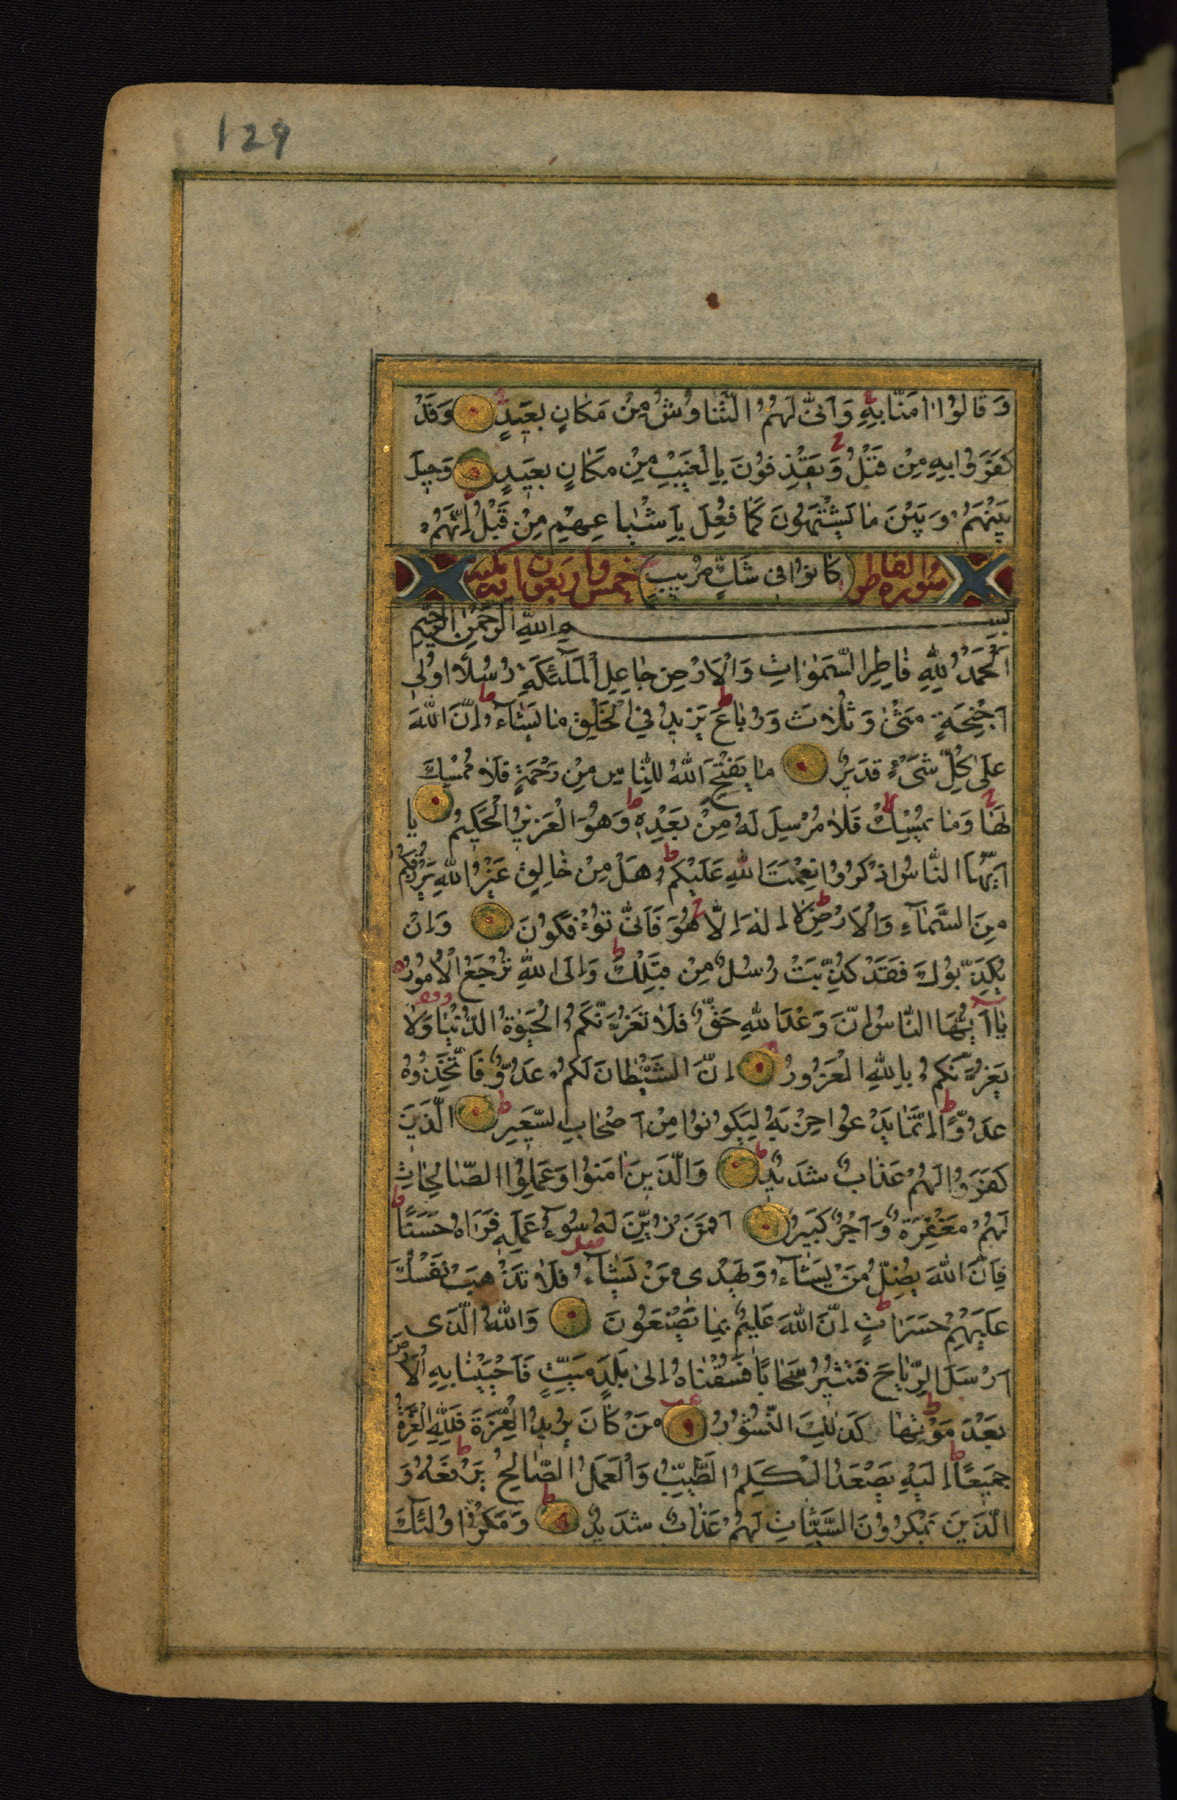 129
وَقَالُوا اٰمَنَّا بِهِ وَاَنّٰى لَهُمُ التَّنَاوُشُ مِنْ مَكَانٍ بَعِيدٍ وَقَدْ
كَفَرُوا بِهِ مِنْ قَبْلُ وَيَقْذِفُونَ بِالْغَيْبِ مِنْ مَكَانٍ بَعِيدٍ وَحِيلَ
بَيْنَهُمْ وَبَيْنَ مَا يَشْتَهُونَ كَمَا فُعِلَ بِاَشْيَاعِهِمْ مِنْ قَبْلُ اِنَّهُمْ
سورة الفاطر كَانُوا فِى شَكٍّ مُرِيبٍ خمس واربعون اية مكية
بِسْمِ اللهِ الرَّحْمٰنِ الرَّحِيمِ
اَلْحَمْدُ لِلّٰهِ فَاطِرِ السَّمٰوَاتِ وَالْاَرْضِ جَاعِلِ الْمَلٰٓئِكَةِ رُسُلًا اُولِى
اَجْنِحَةٍ مَثْنٰى وَثُلَاثَ وَرُبَاعَ يَزِيدُ فِي الْخَلْقِ مَا يَشَٓاءُ اِنَّ اللهَ
عَلٰى كُلِّ شَيْءٍ قَدِيرٌ مَا يَفْتَحِ اللهُ لِلنَّاسِ مِنْ رَحْمَةٍ فَلَا مُمْسِكَ
لَهَا وَمَا يُمْسِكْ فَلَا مُرْسِلَ لَهُ مِنْ بَعْدِهِ وَهُوَ الْعَزِيزُ الْحَكِيمُ يَا
اَيُّهَا النَّاسُ اذْكُرُوا نِعْمَتَ اللهِ عَلَيْكُمْ هَلْ مِنْ خَالِقٍ غَيْرُ اللهِ يَرْزُقُكُمْ
مِنَ السَّمَٓاءِ وَالْاَرْضِ لَا اِلٰهَ اِلَّا هُوَ فَاَنّٰى تُؤْفَكُونَ وَاِنْ
يُكَذِّبُوكَ فَقَدْ كُذِّبَتْ رُسُلٌ مِنْ قَبْلِكَ وَاِلَى اللهِ تُرْجَعُ الْاُمُورُ
يَٓا اَيُّهَا النَّاسُ اِنَّ وَعْدَ اللهِ حَقٌّ فَلَا تَغُرَّنَّكُمُ الْحَيٰوةُ الدُّنْيَا وَلَا
يَغُرَّنَّكُمْ بِاللهِ الْغَرُورُ اِنَّ الشَّيْطَانَ لَكُمْ عَدُوٌّ فَاتَّخِذُوهُ
عَدُوًّا اِنَّمَا يَدْعُوا حِزْبَهُ لِيَكُونُوا مِنْ اَصْحَابِ السَّعِيرِ اَلَّذِينَ
كَفَرُوا لَهُمْ عَذَابٌ شَدِيدٌ وَالَّذِينَ اٰمَنُوا وَعَمِلُوا الصَّالِحَاتِ
لَهُمْ مَغْفِرَةٌ وَاَجْرٌ كَبِيرٌ اَفَمَنْ زُيِّنَ لَهُ سُٓوءُ عَمَلِهِ فَرَاٰهُ حَسَنًا
فَاِنَّ اللهَ يُضِلُّ مَنْ يَشَٓاءُ وَيَهْدِى مَنْ يَشَٓاءُ فَلَا تَذْهَبْ نَفْسُكَ
عَلَيْهِمْ حَسَرَاتٍ اِنَّ اللهَ عَلِيمٌ بِمَا يَصْنَعُونَ وَاللهُ الَّذِى
اَرْسَلَ الرِّيَاحَ فَتُثِيرُ سَحَابًا فَسُقْنَاهُ اِلٰى بَلَدٍ مَيِّتٍ فَاَحْيَيْنَا بِهِ الْاَرْضَ
بَعْدَ مَوْتِهَا كَذٰلِكَ النُّشُورُ مَنْ كَانَ يُرِيدُ الْعِزَّةَ فَلِلّٰهِ الْعِزَّةُ
جَمِيعًا اِلَيْهِ يَصْعَدُ الْكَلِمُ الطَّيِّبُ وَالْعَمَلُ الصَّالِحُ يَرْفَعُهُ وَ
الَّذِينَ يَمْكُرُونَ السَّيِّئَاتِ لَهُمْ عَذَابٌ شَدِيدٌ وَمَكْرُ اُولٰٓئِكَ